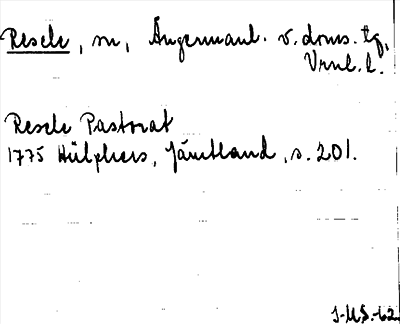 Resele, sn, Ångermanl. v. doms. tg,
Vrnl. l.
Resele Pastorat
1775 Hülphers, Jämtland, s. 201.
J-M.S.-62